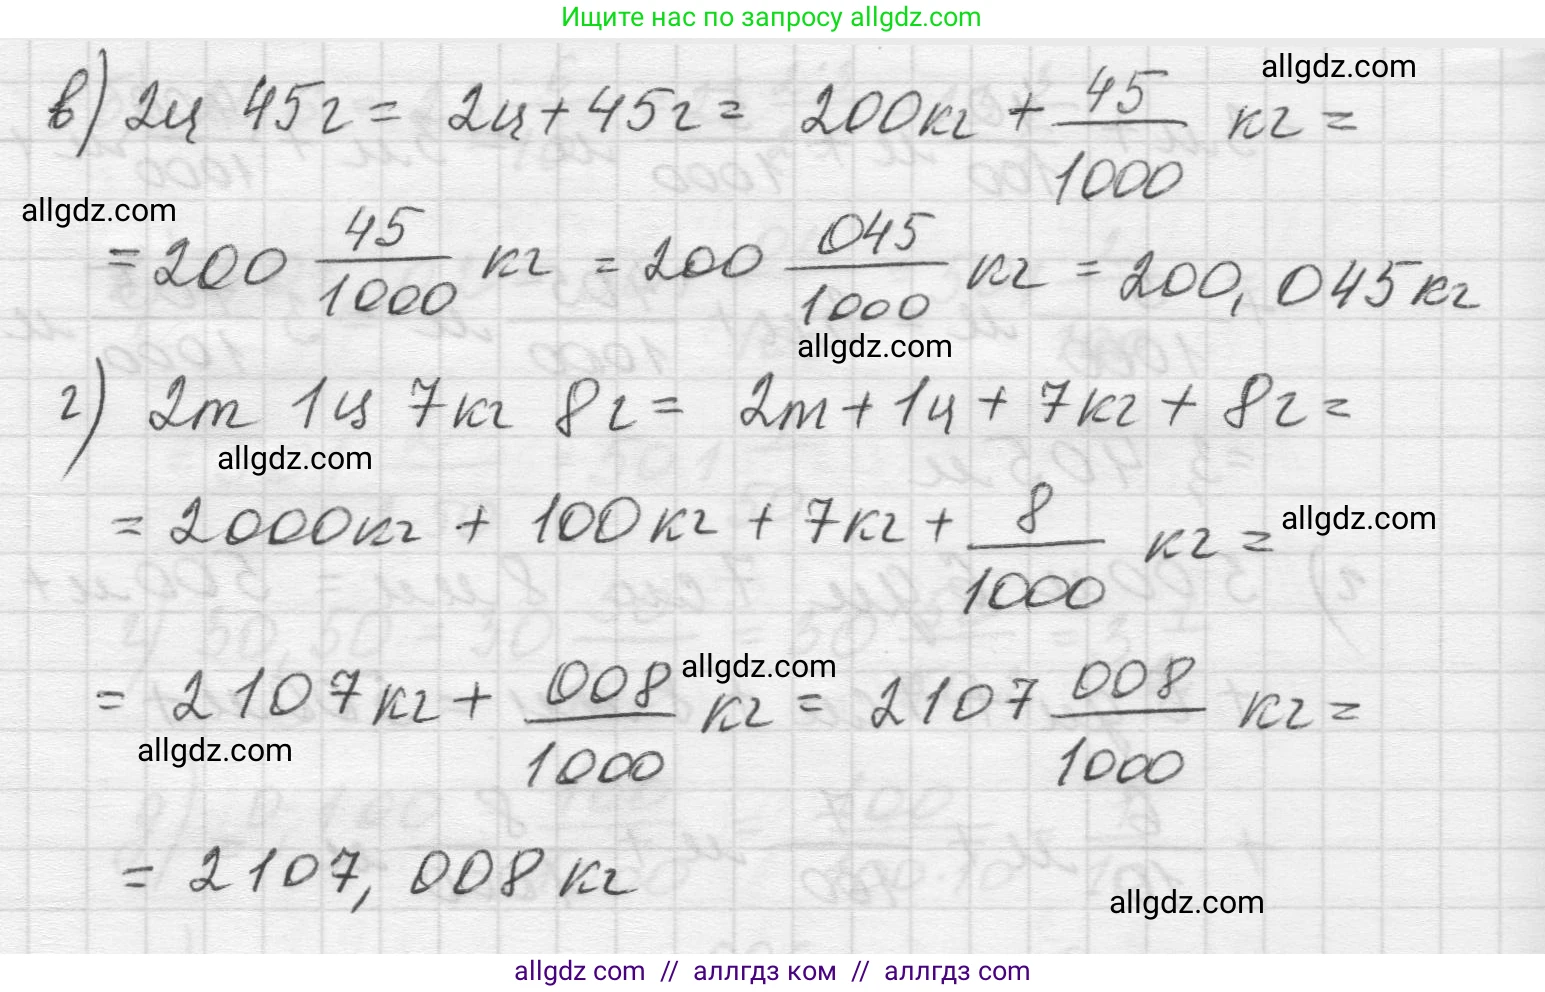 Ищите нас по запросу allgdz.com
allgdz.com
в) 2ц 45г = 2ц + 45г = 200кг + 45/1000 кг =
allgdz.com
= 200 45/1000 кг = 200 045/1000 кг = 200,045кг
allgdz.com
г) 2т 1ц 7кг 8г = 2т + 1ц + 7кг + 8г =
allgdz.com
= 2000кг + 100кг + 7кг + 8/1000 кг =
allgdz.com
allgdz.com
= 2107кг + 008/1000 кг = 2107 008/1000 кг =
allgdz.com
= 2107,008кг
allgdz.com
allgdz com // аллгдз ком // аллгдз com